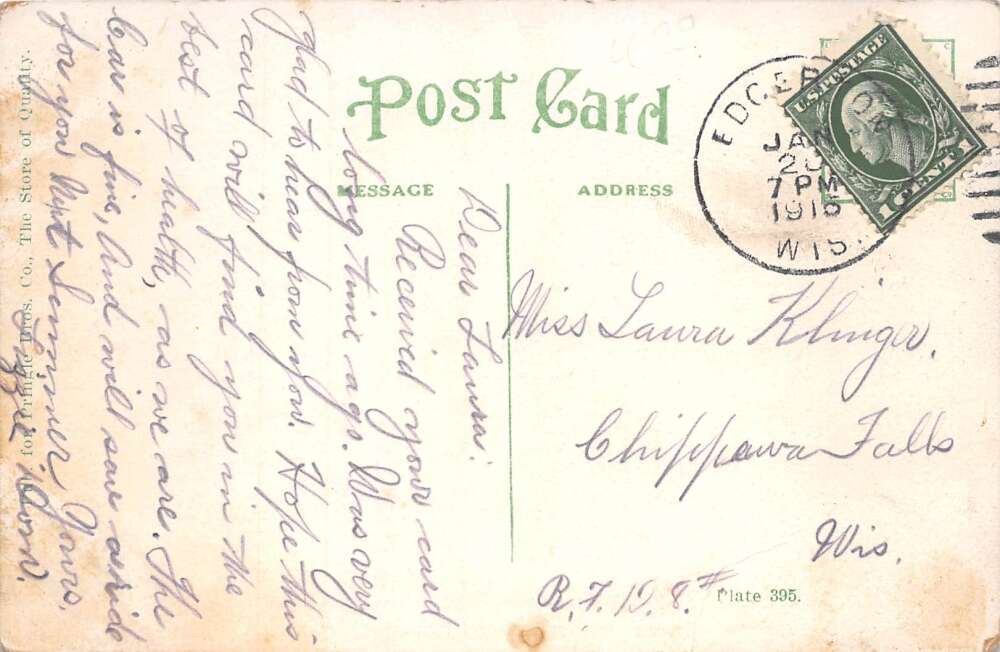 Post Card
MESSAGE
ADDRESS
EDGERTON
JAN
7 PM
1916
WIS.
U.S. POSTAGE
1 CENT 1
Dear Laura:
Received your card
long time ago. Was very
glad to hear from you. Hope this
card will find you in the
best of health, as we are. The
car is fine, And will save a ride
for you Next Summer. Yours,
Lizzie
Miss Laura Klinger.
Chippawa Falls
Wis.
R.F.D. 8.#
Plate 395.
for Pringle Bros. Co., The Store of Quality.